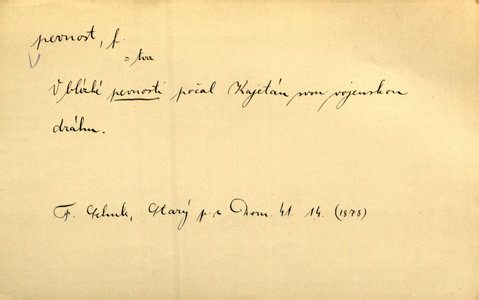 pevnost, f.
= tvrz
V blízké pevnosti počal Kajetán svou vojenskou
dráhu.
F. Schulz, Starý p. z Dom. 41. 14. (1878)